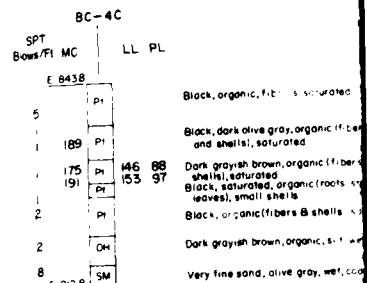 BC-4C
SPT
Blows/Ft MC LL PL
E 843.8
Pt Black, organic, saturated
5
Black, dark olive gray, organic (fiber
1 189 Pt and shells), saturated
Dark grayish brown, organic (fibers
1 175 Pt 146 88 shells), saturated
191 Pt 153 97 Black, saturated, organic (roots
leaves), small shells
2 Pt Black, organic (fibers & shells
2 OH Dark grayish brown, organic,
8 SM Very fine sand, olive gray, wet,